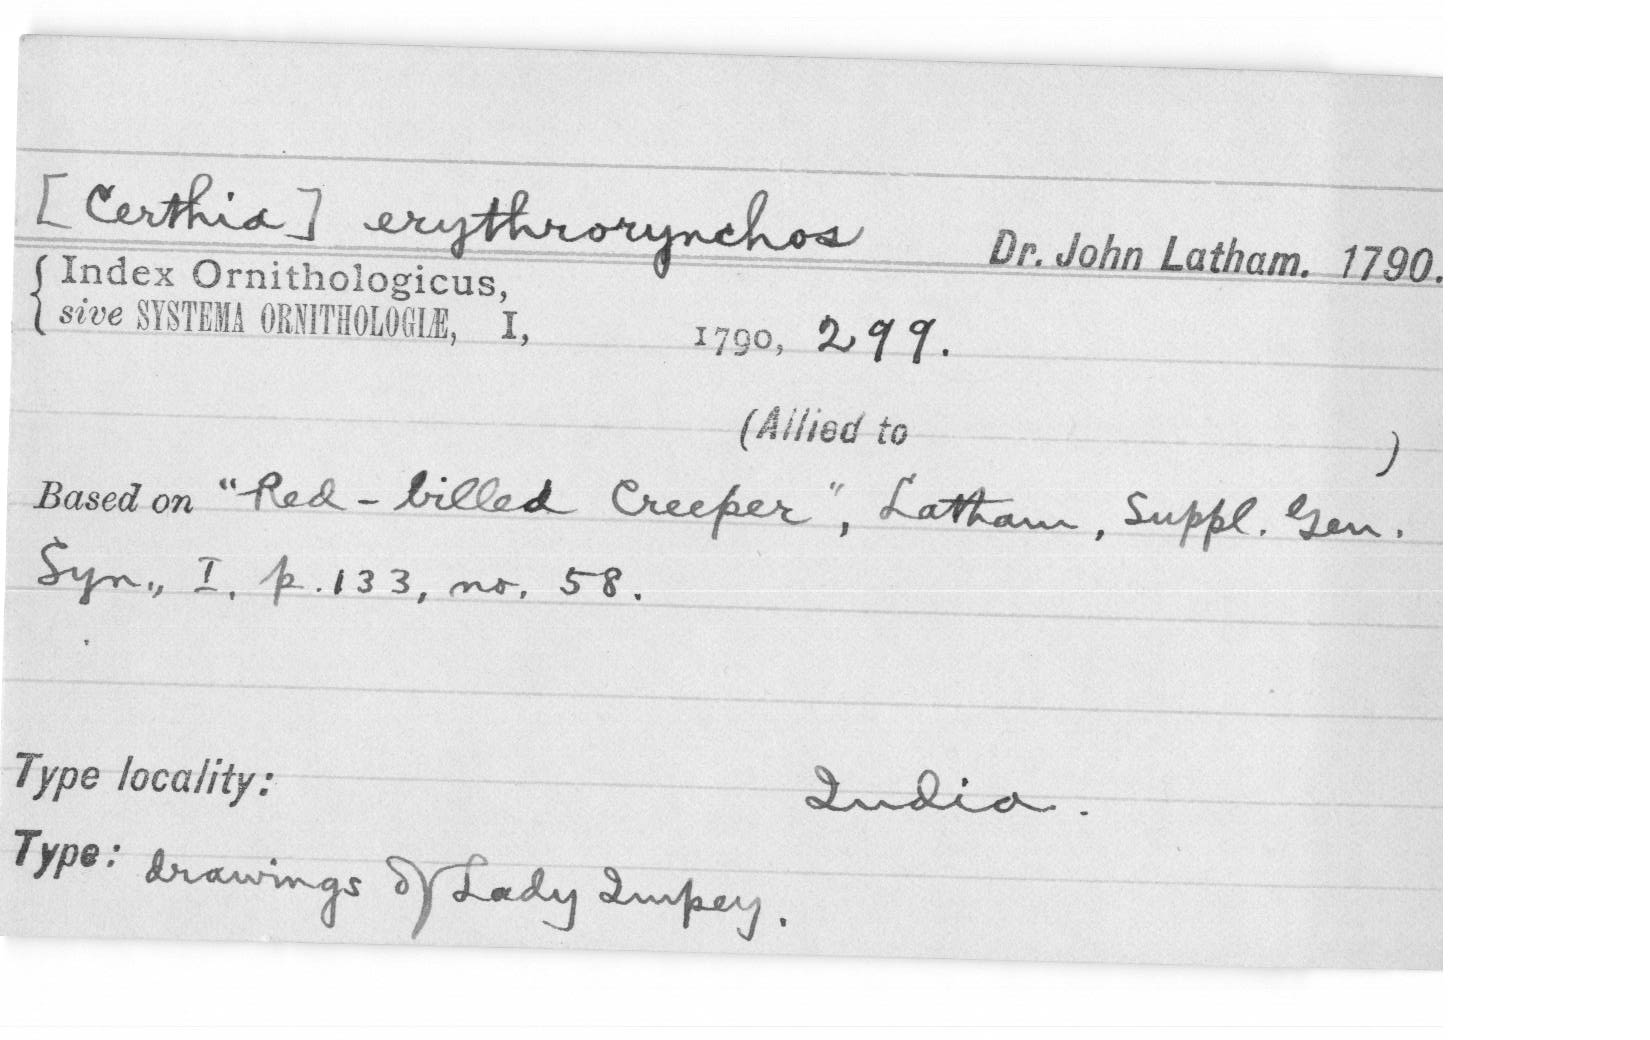 [Certhia] erythrorynchos Dr. John Latham. 1790.
Index Ornithologicus,
sive SYSTEMA ORNITHOLOGIÆ, I, 1790, 299.
(Allied to )
Based on "Red-billed Creeper", Latham, Suppl. Gen.
Syn., I, p. 133, no. 58.
Type locality: India.
Type: drawings of Lady Impey.